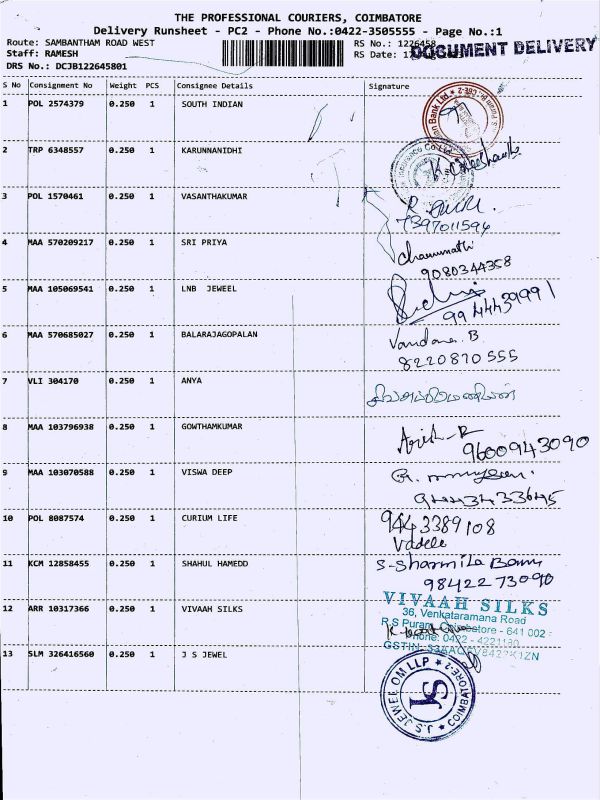 THE PROFESSIONAL COURIERS, COIMBATORE
Delivery Runsheet - PC2 - Phone No.:0422-3505555 - Page No.:1
Route: SAMBANTHAM ROAD WEST
RS No.: 1226458
DOCUMENT DELIVERY
Staff: RAMESH
RS Date:
DRS No.: DCJB122645801
S No Consignment No Weight PCS Consignee Details Signature
1 POL 2574379 0.250 1 SOUTH INDIAN
2 TRP 6348557 0.250 1 KARUNNANIDHI
3 POL 1570461 0.250 1 VASANTHAKUMAR
7397011594
4 MAA 570209217 0.250 1 SRI PRIYA
9080344358
5 MAA 105069541 0.250 1 LNB JEWEEL
9944439991
6 MAA 570685027 0.250 1 BALARAJAGOPALAN Vandana. B
8220870555
7 VLI 304170 0.250 1 ANYA
8 MAA 103796938 0.250 1 GOWTHAMKUMAR
9600943090
9 MAA 103070588 0.250 1 VISWA DEEP
10 POL 8087574 0.250 1 CURIUM LIFE 9443389108
11 KCM 12858455 0.250 1 SHAHUL HAMEDD S-Sharmila Banu
9842273090
12 ARR 10317366 0.250 1 VIVAAH SILKS
VIVAAH SILKS
36, Venkataramana Road
R.S Puram, Coimbatore - 641 002
Phone: 0422 - 4221130
13 SLM 326416560 0.250 1 J S JEWEL
J.S. JEWEL OM LLP ★ COIMBATORE-2 ★
JS